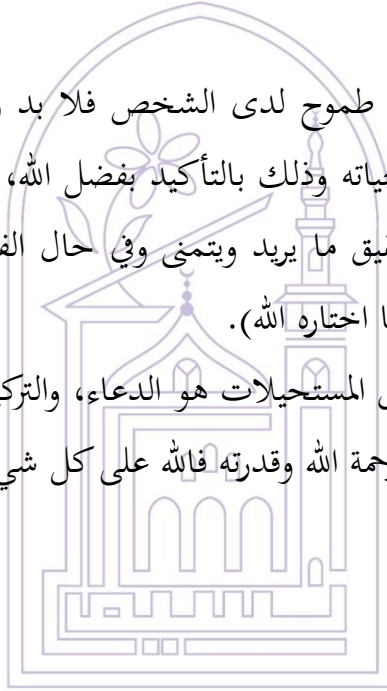 طموح لدى الشخص فلا بد
حياته وذلك بالتأكيد بفضل الله،
ما يريد ويتمنى وفي حال
اختاره الله).
المستحيلات هو الدعاء،
الله وقدرته فالله على كل